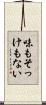 味もそっ
けもない